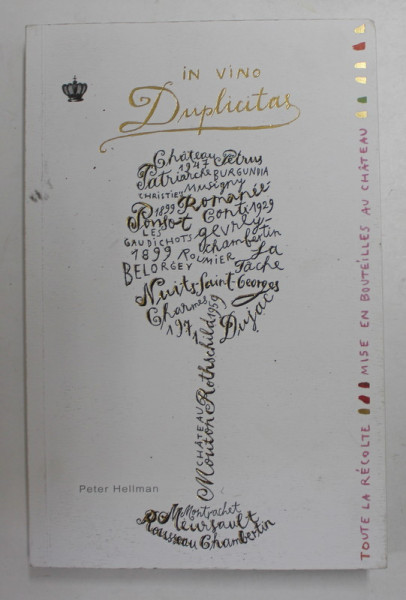 IN VINO
Duplicitas
Château Pétrus
1947
Patriarche BURGUNDIA
CHRISTIE'S Musigny
1899 Romanée
Ponsot Conti 1929
LES gevrey-
GAUDICHOTS chambertin
1899 ROUMIER La
BELORGEY Tâche
Nuits-Saint-Georges
Charmes
1971 Dujac
CHÂTEAU
Mouton Rothschild 1959
Peter Hellman
Montrachet
Meursault
Rousseau Chambertin
TOUTE LA RÉCOLTE MISE EN BOUTEILLES AU CHÂTEAU